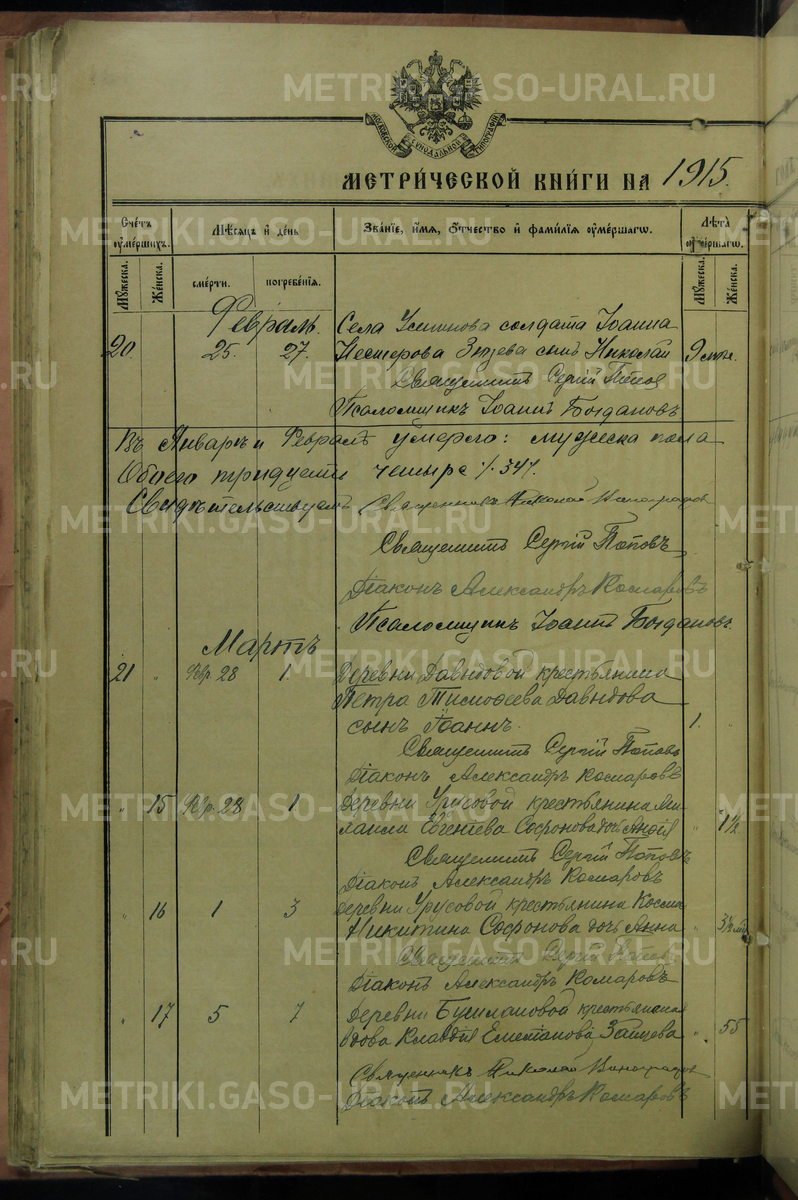 МОСКОВСКОЙ СѴНОДАЛЬНОЙ ТИПОГРАФІИ
МЕТРИ́ЧЕСКОЙ КНИ́ГИ НА 1915.
Сче́тъ ᲂу҆ме́ршихъ. Мѣ́сяцъ и҆ де́нь Зва́нїе, и҆́мѧ, ѻ҆́тчество и҆ фами́лїѧ ᲂу҆ме́ршагѡ. Лѣ́та ᲂу҆ме́ршагѡ.
Мꙋ́жеска. Же́нска. сме́рти. погребе́нїѧ. Мꙋ́жеска. Же́нска.
Февраль. Села солдата Іоанна
20. 25. 27. Нестерова сынъ Николай 9
Священникъ Сергій Попов
Псаломщикъ Іоаннъ Богдановъ
Въ Январѣ и Февралѣ умерло: мужеска пола
Обоего тридцать четыре /:34/.
Свидѣтельствуемъ Священникъ Николай Виноградов
Священникъ Сергій Поповъ
Діаконъ Александръ Комаровъ
Псаломщикъ Іоаннъ Богдановъ.
Мартъ
21 " Февр. 28 1. Деревни Давыдовой крестьянина
Петра Тимофеева Давыдова
сынъ Іоаннъ. 1. "
Священникъ Сергій Поповъ
Діаконъ Александръ Комаровъ
" 15 Февр. 28 1 Деревни Урусовой крестьянина Ми-
хаила Евгеніева Софронова дочь " 1½
Священникъ Сергій Поповъ
Діаконъ Александръ Комаровъ
" 16 1 3 Деревни Урусовой крестьянина Косма
Никитина Софронова дочь Анна "
Священникъ Сергій Попов
Діаконъ Александръ Комаровъ
" 17 5 7 Деревни крестьянская
вдова Клавдія Емелианова Зайцева " 55
Священникъ Николай Виноградов
Діаконъ Александръ Комаровъ
METRIKI.GASO-URAL.RU